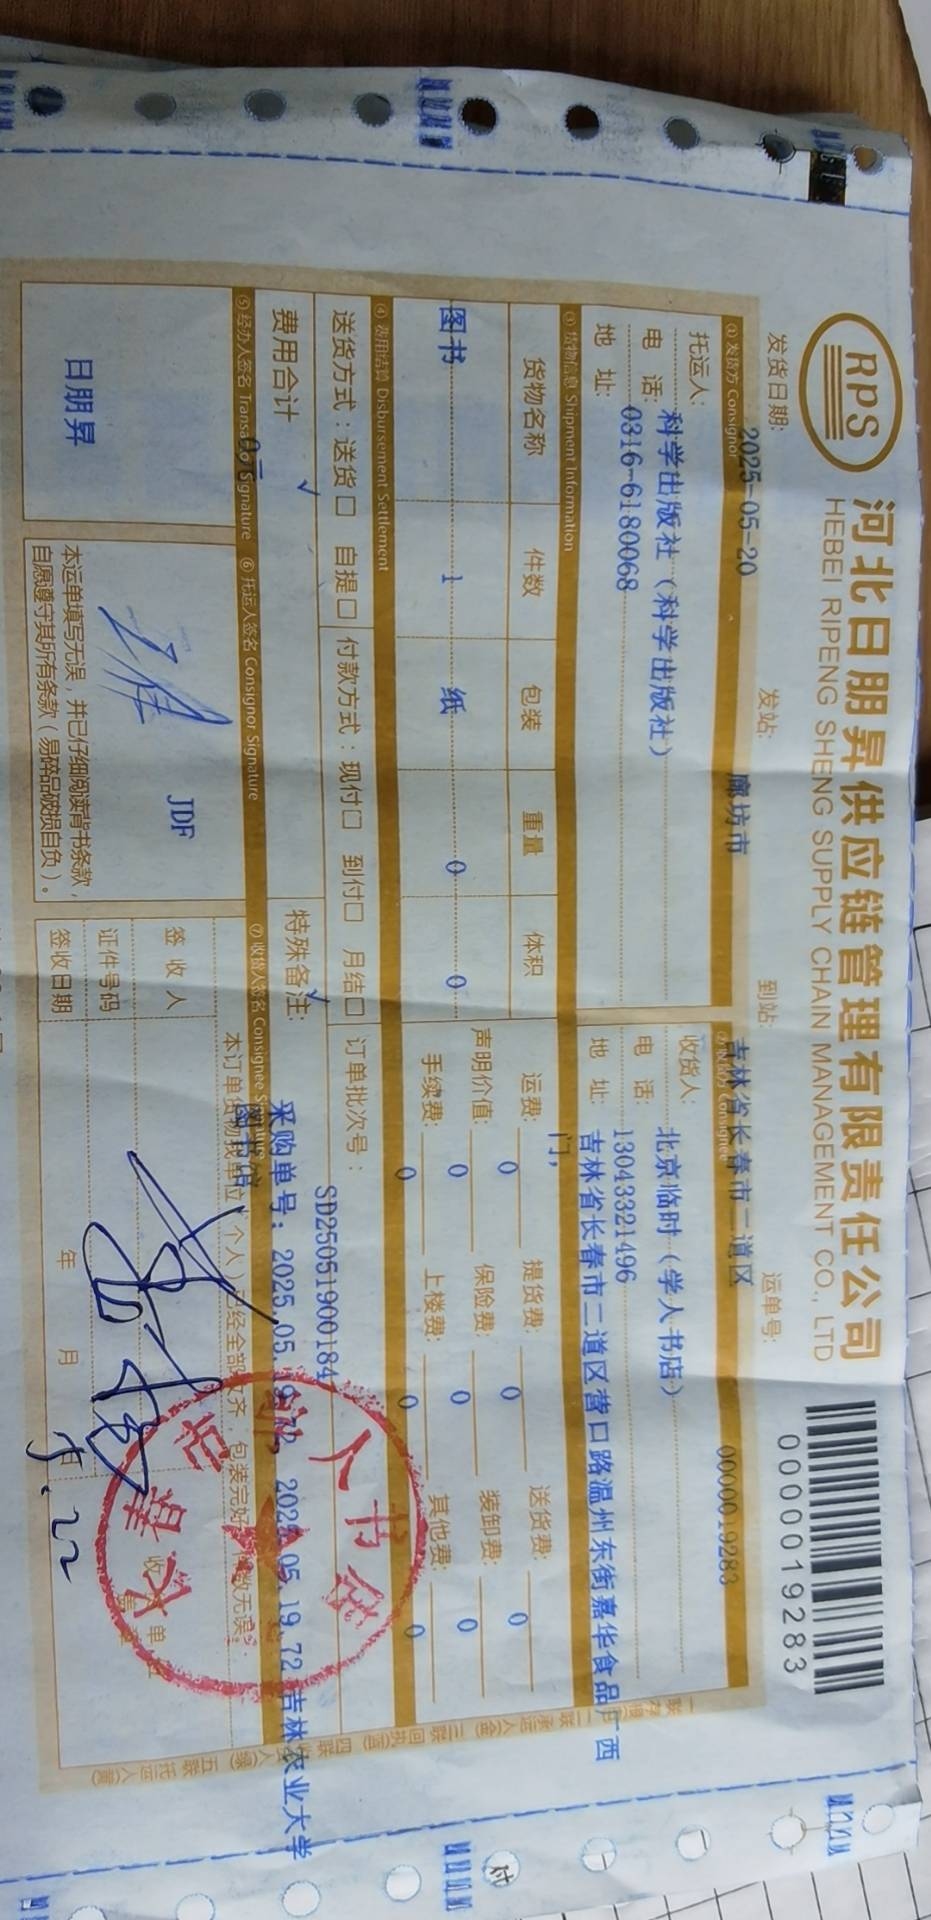 RPS
河北日朋昇供应链管理有限责任公司
HEBEI RIPENG SHENG SUPPLY CHAIN MANAGEMENT CO., LTD
0000019283
发货日期: 2025-05-20 发站: 廊坊市 到站: 吉林省长春市二道区 运单号: 0000019283
① 发货方 Consignor
托运人: 科学出版社（科学出版社）
电 话: 0316-6180068
地 址:
② 收货方 Consignee
收货人: 北京临时（学人书店）
电 话: 13043321496
地 址: 吉林省长春市二道区营口路温州东街嘉华食品厂西
门,
③ 货物信息 Shipment Information
货物名称 件数 包装 重量 体积
图书 1 纸 0 0
运费: 0 提货费: 0 送货费: 0
声明价值: 0 保险费: 0 装卸费: 0
手续费: 0 上楼费: 0 其他费: 0
④ 费用结算 Disbursement Settlement
送货方式：送货□ 自提□ 付款方式：现付□ 到付□ 月结□ 订单批次号： SD250519001184
费用合计
特殊备注: 采购单号：2025.05.19.72, 2025.05.19.72 吉林农业大学
图书馆
⑤ 经办人签名 Transactor Signature
日朋昇
⑥ 托运人签名 Consignor Signature
JDF
本运单填写无误，并已仔细阅读背书条款，
自愿遵守其所有条款（易碎品破损自负）。
⑦ 收货人签名 Consignee
签 收 人
证件号码
签收日期 年 月 日
5.22
人书店
一联 二联承运人 三联回执 四联 五联托运人